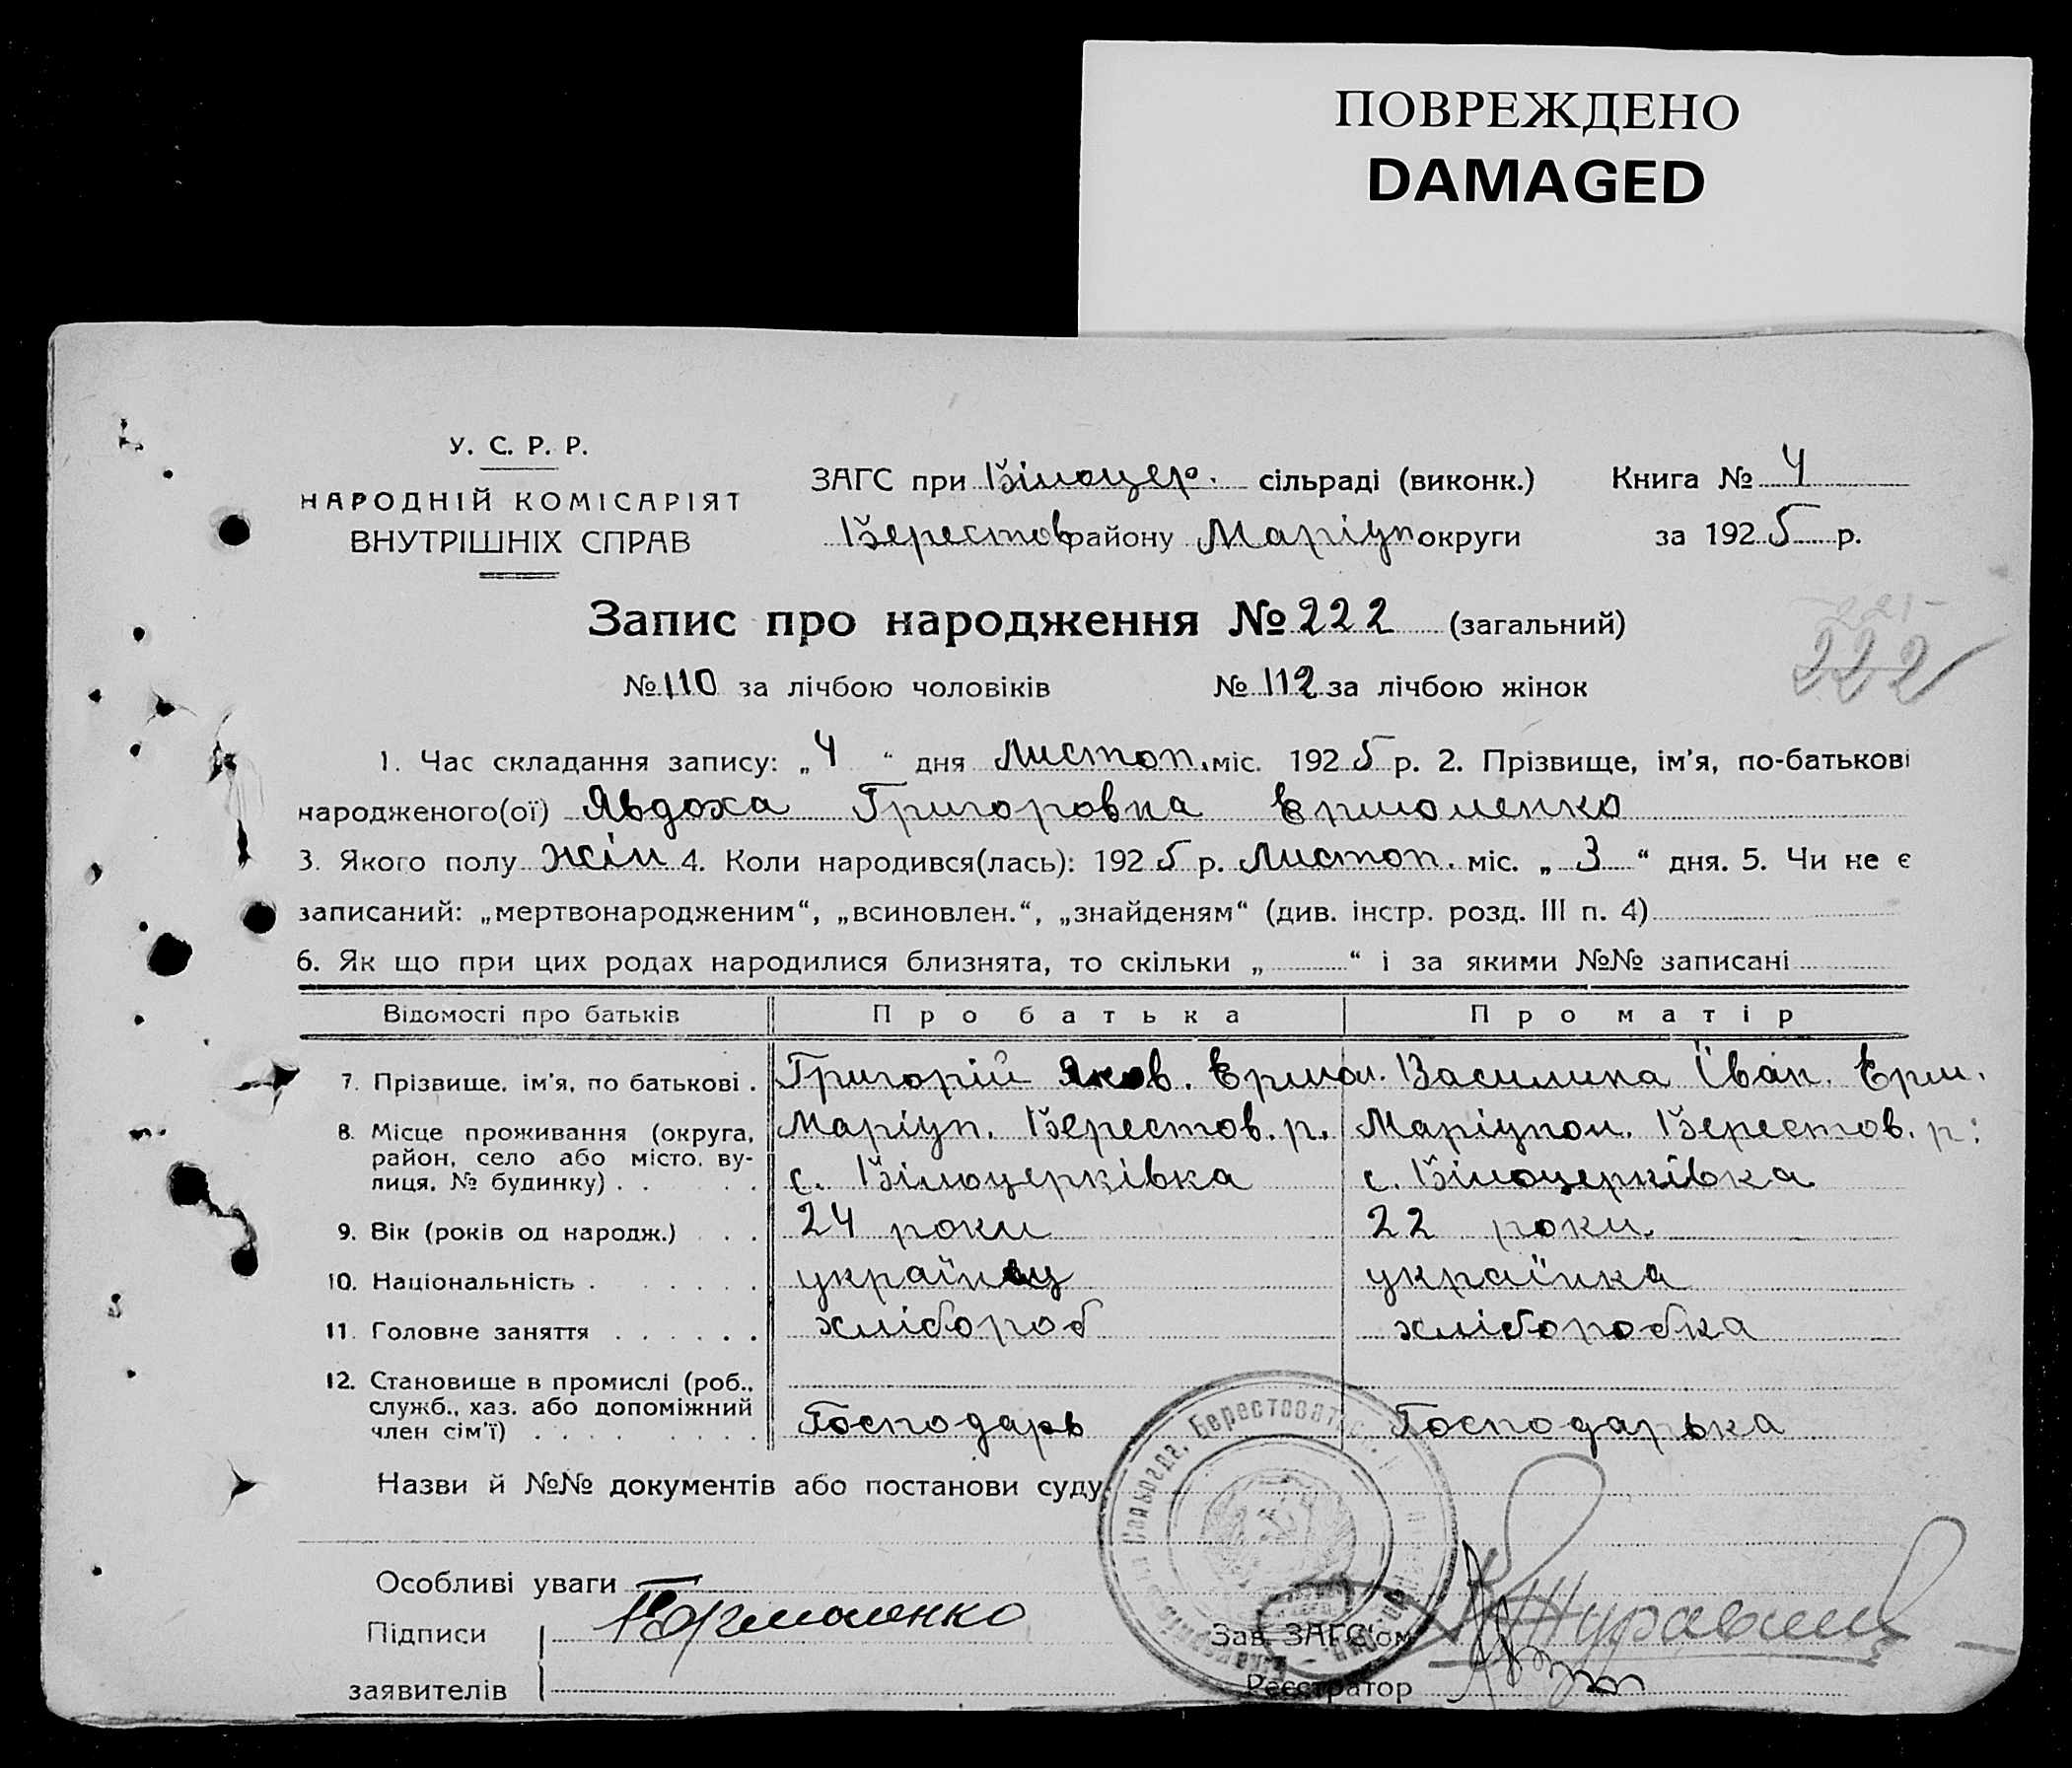 ПОВРЕЖДЕНО
DAMAGED
У. С. Р. Р.
НАРОДНІЙ КОМІСАРІЯТ
ВНУТРІШНІХ СПРАВ
ЗАГС при Білоцер. сільраді (виконк.) Книга № 4
Берестов району Маріуп округи за 1925 р.
Запис про народження № 222 (загальний)
-221-
222
№ 110 за лічбою чоловіків № 112 за лічбою жінок
1. Час складання запису: „4“ дня Листоп. міс. 1925 р. 2. Прізвище, ім'я, по-батькові
народженого(ої) Явдоха Григоровна Ермоленко
3. Якого полу жін 4. Коли народився(лась): 1925 р. Листоп. міс. „3“ дня. 5. Чи не є
записаний: „мертвонародженим“, „всиновлен.“, „знайденям“ (див. інстр. розд. III п. 4)
6. Як що при цих родах народилися близнята, то скільки „ “ і за якими №№ записані
Відомості про батьків Про батька Про матір
7. Прізвище, ім'я, по батькові . Григорій Яков. Ермол. Василина Іван. Ерм.
8. Місце проживання (округа, Маріуп. Берестов. р. Маріупол. Берестов. р:
район, село або місто, ву-
лиця, № будинку) . . . . с. Білоцерківка с. Білоцерківка
9. Вік (років од народж.) . . . 24 роки 22 роки.
10. Національність . . . . . . українец українка
11. Головне заняття . . . . . . хлібороб хліборобка
12. Становище в промислі (роб.,
служб., хаз. або допоміжний
член сім'ї) . . . . . . . . Господарь Господарька
Назви й №№ документів або постанови суду
Особливі уваги
Підписи Ермоленко Зав. ЗАГС'ом
заявителів Реєстратор